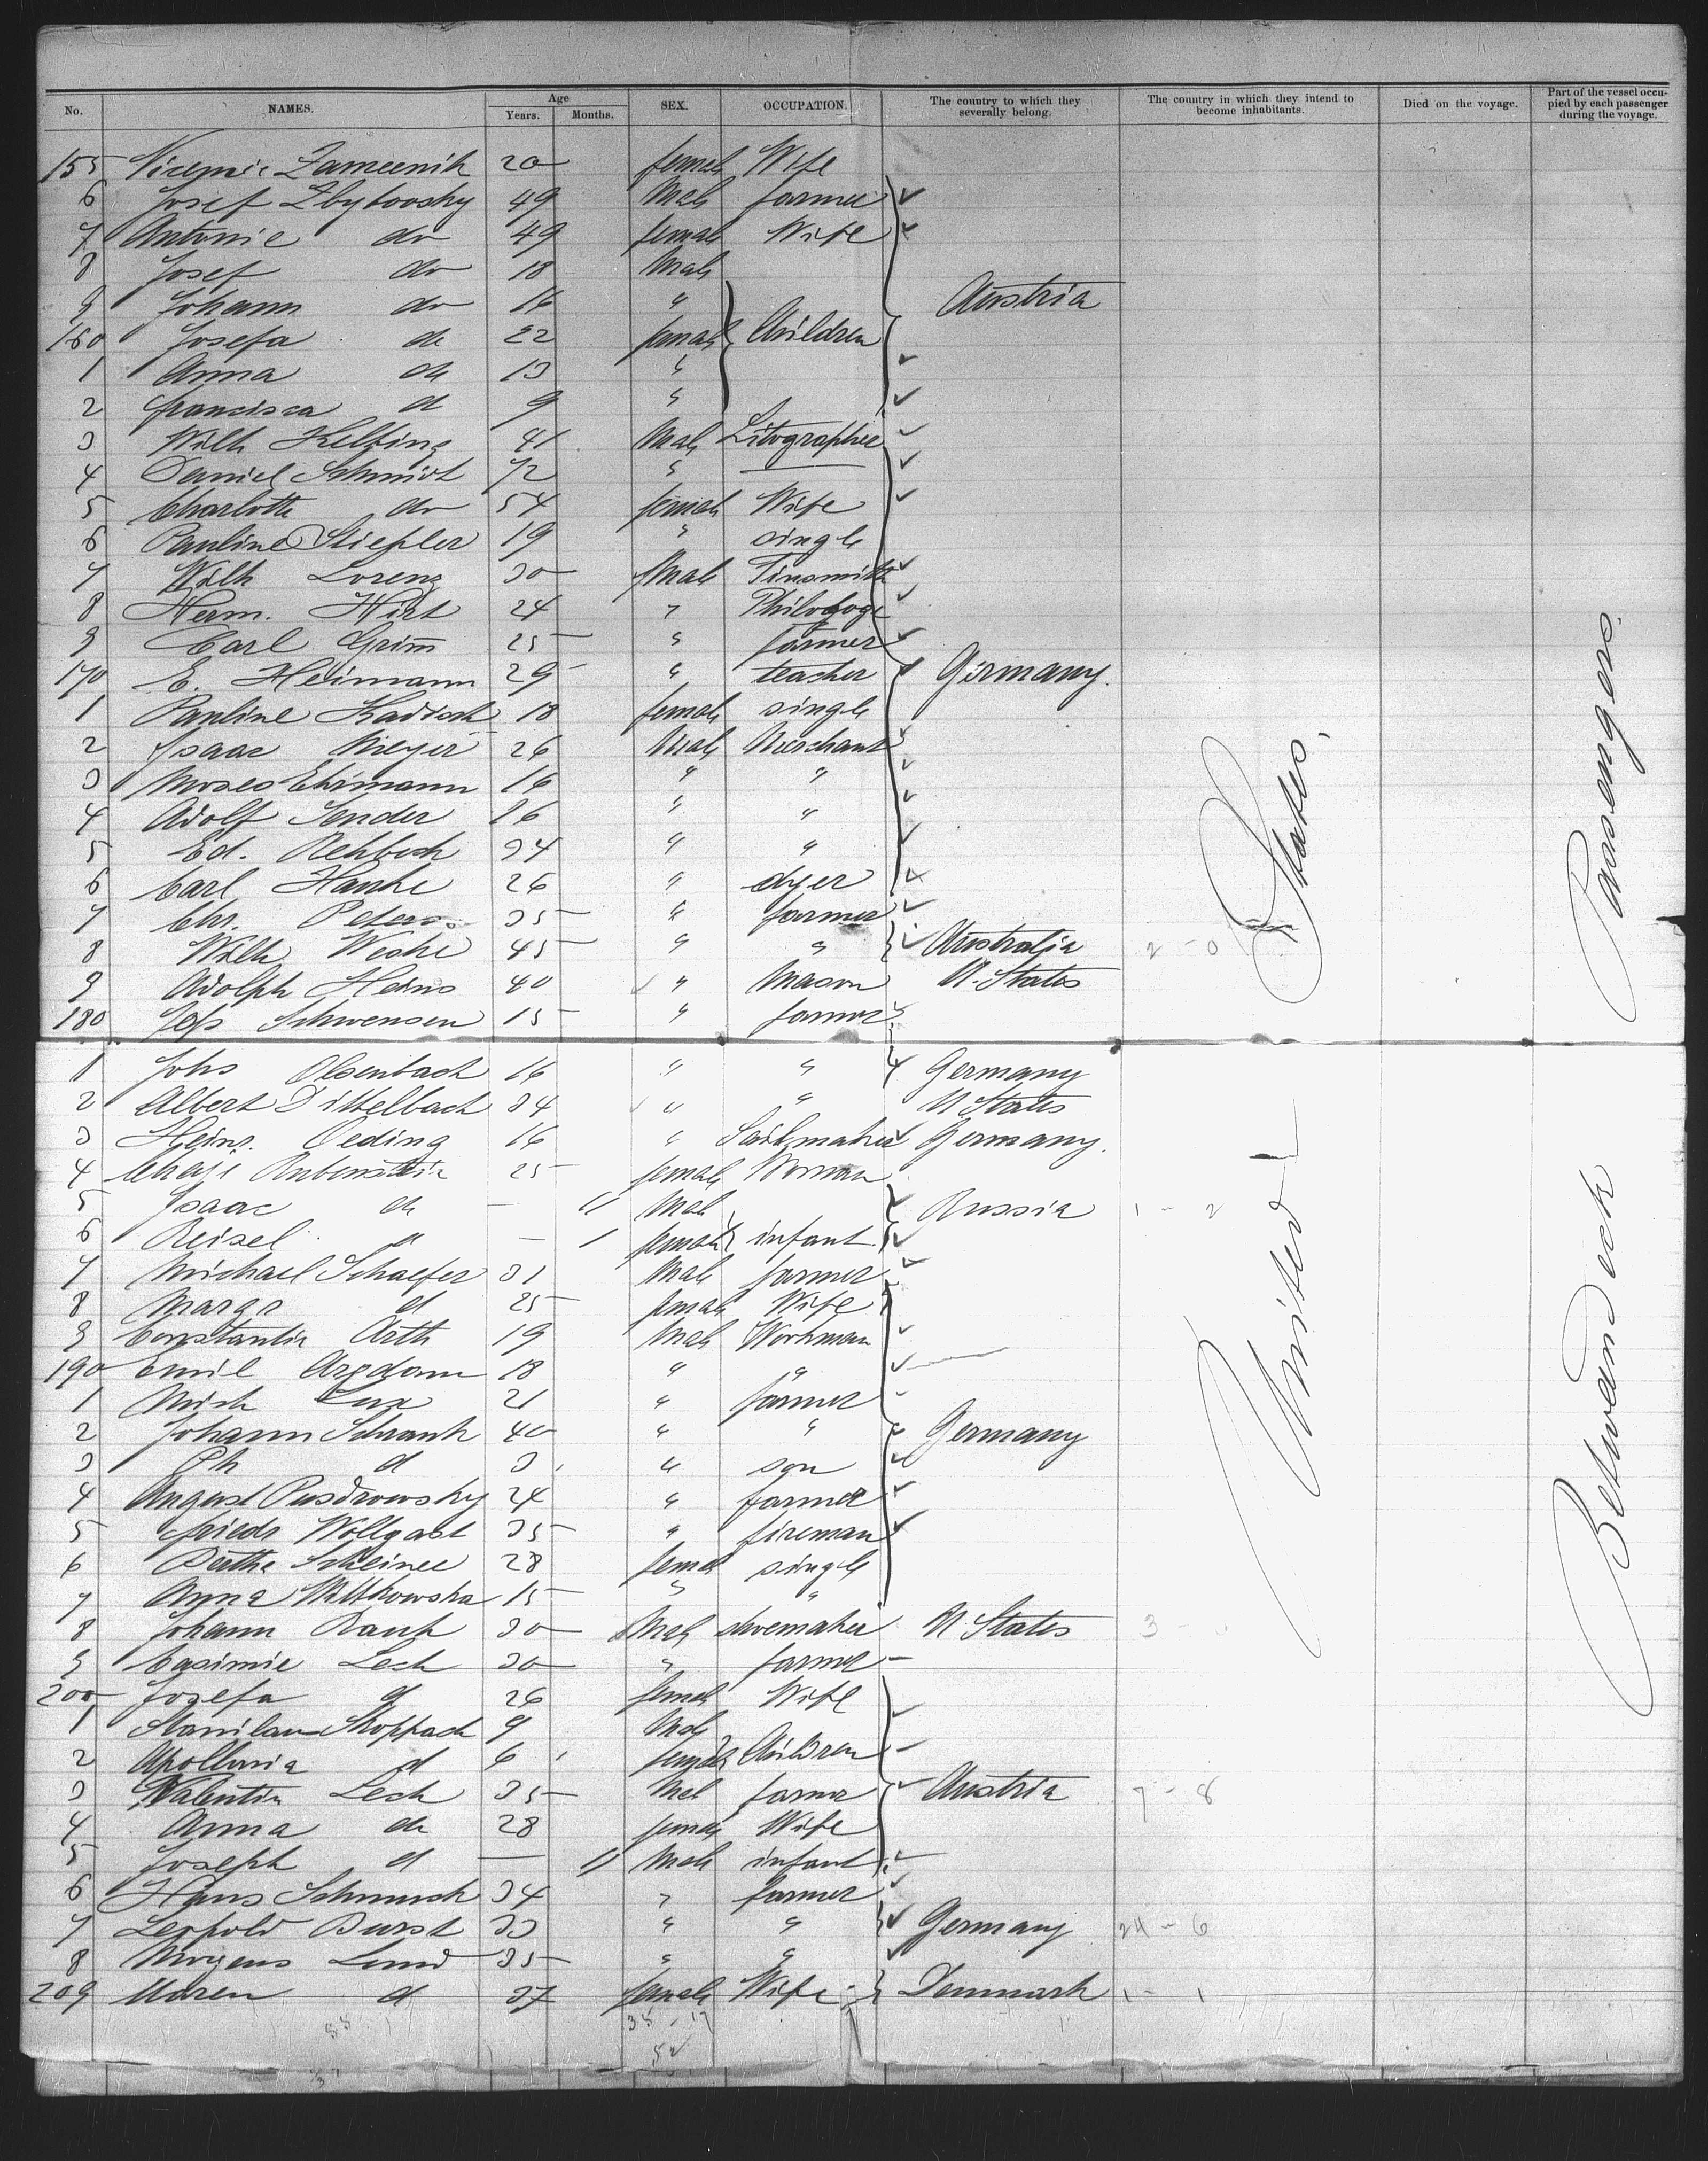 No. NAMES. Age Years. Months. SEX. OCCUPATION. The country to which they severally belong. The country in which they intend to become inhabitants. Died on the voyage. Part of the vessel occupied by each passenger during the voyage.
155 20 female Wife
6 Josef 49 Male farmer
7 Antonie do 49 female Wife
8 Josef do 18 Male
9 Johann do 16 " Children Austria
160 Josefa do 22 female
1 Anna do 13 "
2 Francisca d 9 "
3 Wilh Helfing 41 Male Litographer
4 Daniel Schmidt 72 " —
5 Charlotte do 54 female Wife
6 Pauline Stiepler 19 " single
7 Wilh Lorenz 30 Male Tinsmith
8 Herm. Hirt 24 " Philologe
9 Carl Grim̄ 25 " farmer
170 E. Heimann 29 " teacher Germany.
1 Pauline 18 female single
2 Isaac Meyer 26 Male Merchant
3 Moses Ehrmann 16 " "
4 Adolf Sender 16 " "
5 Ed. Rehbock 34 " "
6 Carl Hanke 26 " dyer
7 Chr. Peters 35 " farmer
8 Wilh. Weske 45 " " Australia 2 - 0
9 Adolph Heins 40 " Mason U. States
180 Schwensen 15 " farmer
1 Johs Olsenbach 16 " " Germany
2 Albert Dittelbach 34 " " U States
3 Heinr. Oeding 16 " Sailmaker Germany.
4 Chaje Rubenstein 25 female Woman
5 Isaac do — 11 Male Russia 1 - 2
6 Reisel d — 1 female infant
7 Michael Schaefer 31 Male farmer
8 Margr d 25 female Wife
9 Constantin Arth 19 Male Workman
190 Emil 18 " "
1 Mich Lux 21 " farmer
2 Johann Schrank 40 " " Germany
3 Ph d 3 " son
4 August Pusdrowsky 24 " farmer
5 Friedr Wollgast 35 " fireman
6 28 female single
7 Anna Wittkowska 15 " "
8 Johann Rank 30 Male shoemaker U States 3 -
9 Casimir Lech 30 " farmer
200 Josefa d 26 female Wife
1 9 Male
2 Apollonia d 6 female Children
3 Valentin Lech 35 Male farmer Austria 7 - 8
4 Anna do 28 female Wife
5 Joseph d — 11 Male infant
6 Hans 34 " farmer
7 Leopold Durst 33 " " Germany 24 - 6
8 Mogens Lund 35 " "
209 Maren d 37 female Wife Denmark 1 - 1
United States.
Betweendeck Passengers.
55
35 . 17
52